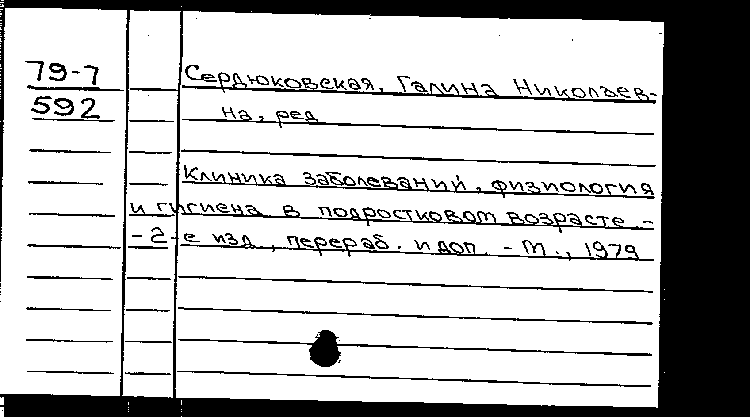 79-7
592
Сердюковская, Галина Николаев-
на, ред
Клиника заболеваний, физиология
и гигиена в подростковом возрасте. -
- 2-е изд., перераб. и доп. - М., 1979